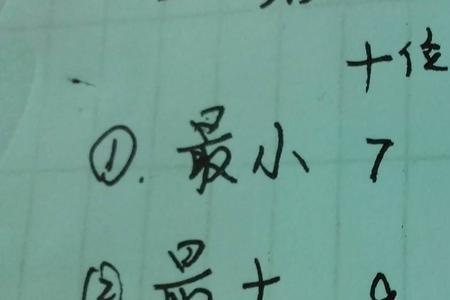 十位
①. 最小 7
② 最大